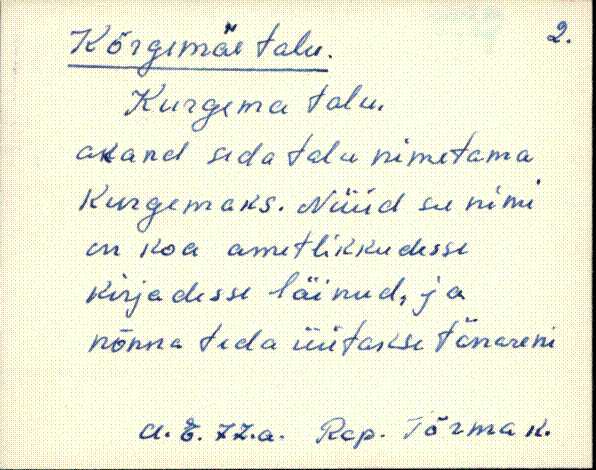 Kõrgemäe talu. 2.
Kurgema talu.
akand seda talu nimetama
Kurgemaks. Nüüd see nimi
on koa ametlikkudesse
kirjadesse läinud, ja
nõnna teda üitakse tänareni
Rap. Tõrma k.